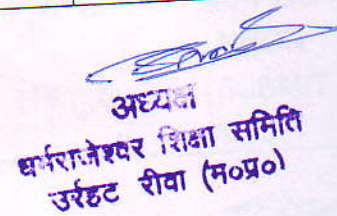 अध्यक्ष
धर्मराजेश्वर शिक्षा समिति
उर्रहट रीवा (म०प्र०)